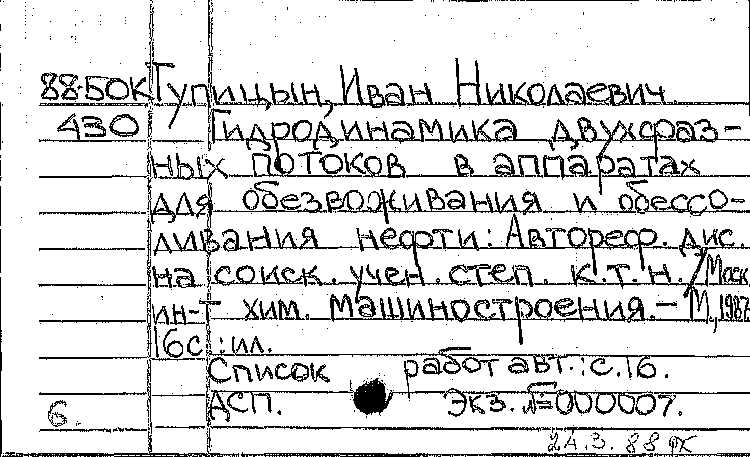 88-5ОК Тупицын, Иван Николаевич.
430 Гидродинамика двухфаз-
ных потоков в аппаратах
для обезвоживания и обессо-
ливания нефти: Автореф. дис.
на соиск. учен. степ. к.т.н. / Моск
ин-т хим. машиностроения. - М., 1987
16с : ил.
Список работ авт.: с. 16.
6. ДСП. Экз. №=000007.
24.3.88